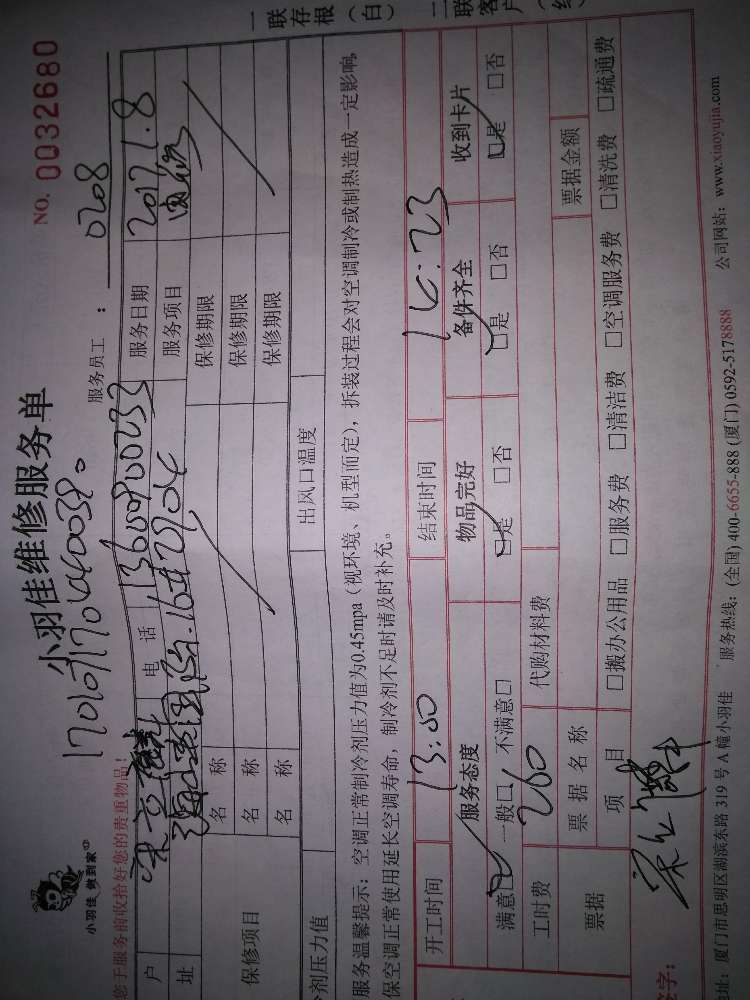 小羽佳 做到家
小羽佳维修服务单
NO. 0032680
一联存根（白） 二联客户（红）
服务员工： 0208
您于服务前收拾好您的贵重物品！
户 电 话 13600900233 服务日期 2017.1.8
址 服务项目
保修项目 名 称 保修期限
名 称 保修期限
名 称 保修期限
剂压力值 出风口温度
服务温馨提示：空调正常制冷剂压力值为0.45mpa（视环境、机型而定），拆装过程会对空调制冷或制热造成一定影响，
保空调正常使用延长空调寿命，制冷剂不足时请及时补充。
开工时间 13:00 结束时间 14:23
服务态度 物品完好 备件齐全 收到卡片
满意□ 一般□ 不满意□ □是 □否 □是 □否 □是 □否
工时费 260 代购材料费
票据 票 据 名 称 票据金额
项 目 □搬办公用品 □服务费 □清洁费 □空调服务费 □清洗费 □疏通费
签字：
地址：厦门市思明区湖滨东路 319 号 A 幢小羽佳 服务热线：(全国) 400-6655-888 (厦门) 0592-5178888 公司网站：www.xiaoyujia.com